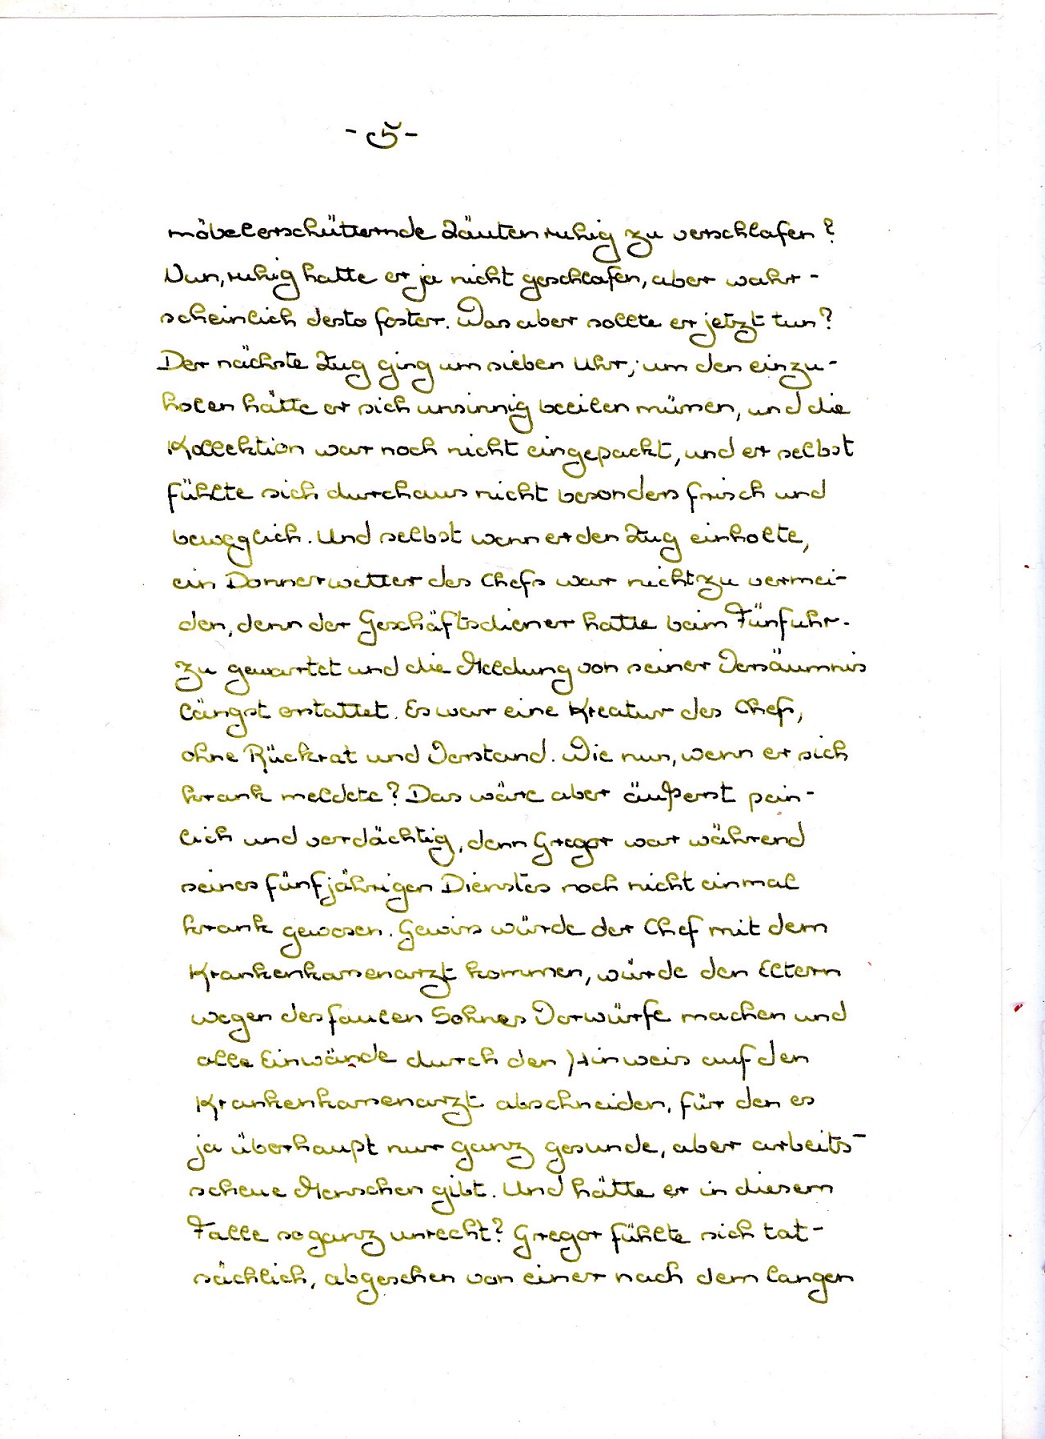 - 5 -
möbelerschütternde Läuten ruhig zu verschlafen?
Nun, ruhig hatte er ja nicht geschlafen, aber wahr-
scheinlich desto fester. Was aber sollte er jetzt tun?
Der nächste Zug ging um sieben Uhr; um den einzu-
holen hätte er sich unsinnig beeilen müssen, und die
Kollektion war noch nicht eingepackt, und er selbst
fühlte sich durchaus nicht besonders frisch und
beweglich. Und selbst wenn er den Zug einholte,
ein Donnerwetter des Chefs war nicht zu vermei-
den, denn der Geschäftsdiener hatte beim Fünfuhr-
zu gewartet und die Meldung von seiner Versäumnis
längst erstattet. Es war eine Kreatur des Chefs,
ohne Rückrat und Verstand. Wie nun, wenn er sich
krank meldete? Das wäre aber äußerst pein-
lich und verdächtig, denn Gregor war während
seines fünfjährigen Dienstes noch nicht einmal
krank gewesen. Gewiss würde der Chef mit dem
Krankenkassenarzt kommen, würde den Eltern
wegen des faulen Sohnes Vorwürfe machen und
alle Einwände durch den Hinweis auf den
Krankenkassenarzt abschneiden, für den es
ja überhaupt nur ganz gesunde, aber arbeits-
scheue Menschen gibt. Und hätte er in diesem
Falle so ganz unrecht? Gregor fühlte sich tat-
sächlich, abgesehen von einer nach dem langen